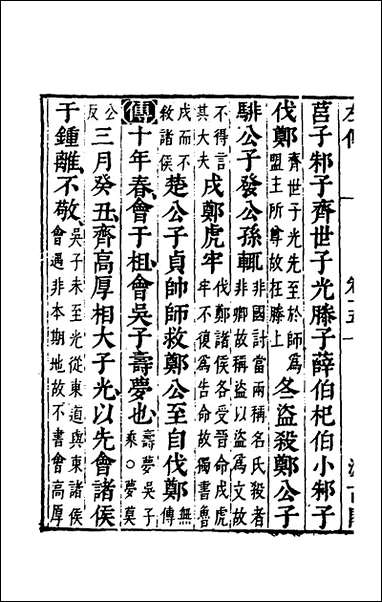 莒子邾子齊世子光滕子薛伯杞伯小邾子
伐鄭齊世子光先至於師爲盟主所尊故在滕上冬盜殺鄭公子
騑公子發公孫輒非國討當兩稱名氏殺者非卿故稱盜以盜爲文故
不得言其大夫戍鄭虎牢伐鄭諸侯各受晉命戍虎牢不復爲告命故獨書魯
戍而不敘諸侯楚公子貞帥師救鄭公至自伐鄭無傳
傳十年春會于柤會吳子壽夢也壽夢吳子乘○夢莫
公反三月癸丑齊高厚相大子光以先會諸侯
于鍾離不敬吳子未至光從東道與東諸侯會遇非本期地故不書會高厚